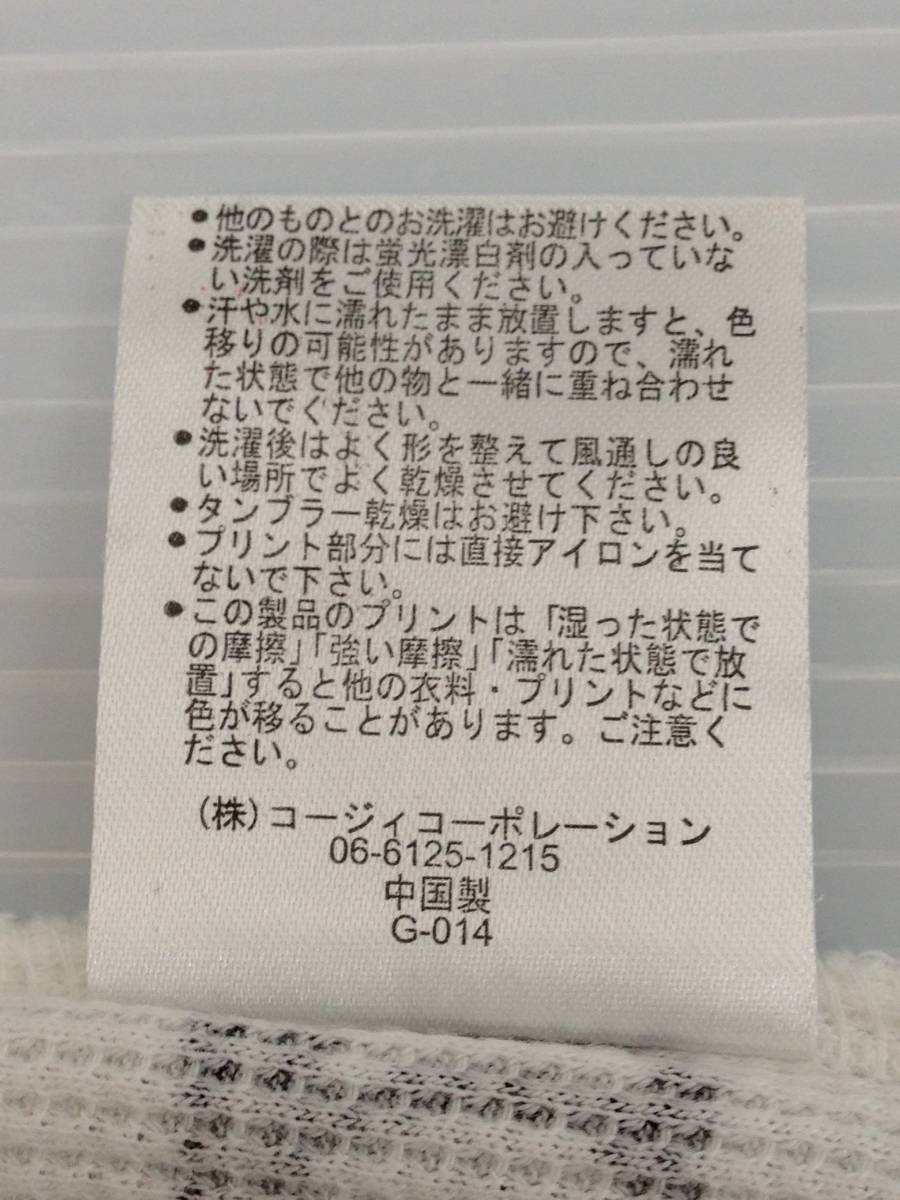 •他のものとのお洗濯はお避けください。
•洗濯の際は蛍光漂白剤の入っていな
い洗剤をご使用ください。
•汗や水に濡れたまま放置しますと、色
移りの可能性がありますので、濡れ
た状態で他の物と一緒に重ね合わせ
ないでください。
•洗濯後はよく形を整えて風通しの良
い場所でよく乾燥させてください。
•タンブラー乾燥はお避け下さい。
•プリント部分には直接アイロンを当て
ないで下さい。
•この製品のプリントは「湿った状態で
の摩擦」「強い摩擦」「濡れた状態で放
置」すると他の衣料・プリントなどに
色が移ることがあります。ご注意く
ださい。
(株)コージィコーポレーション
06-6125-1215
中国製
G-014